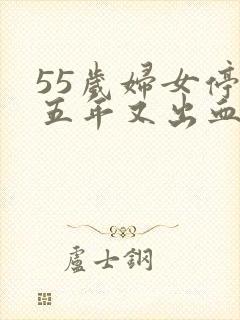 55歲婦女停
五年又出血
盧士鋼